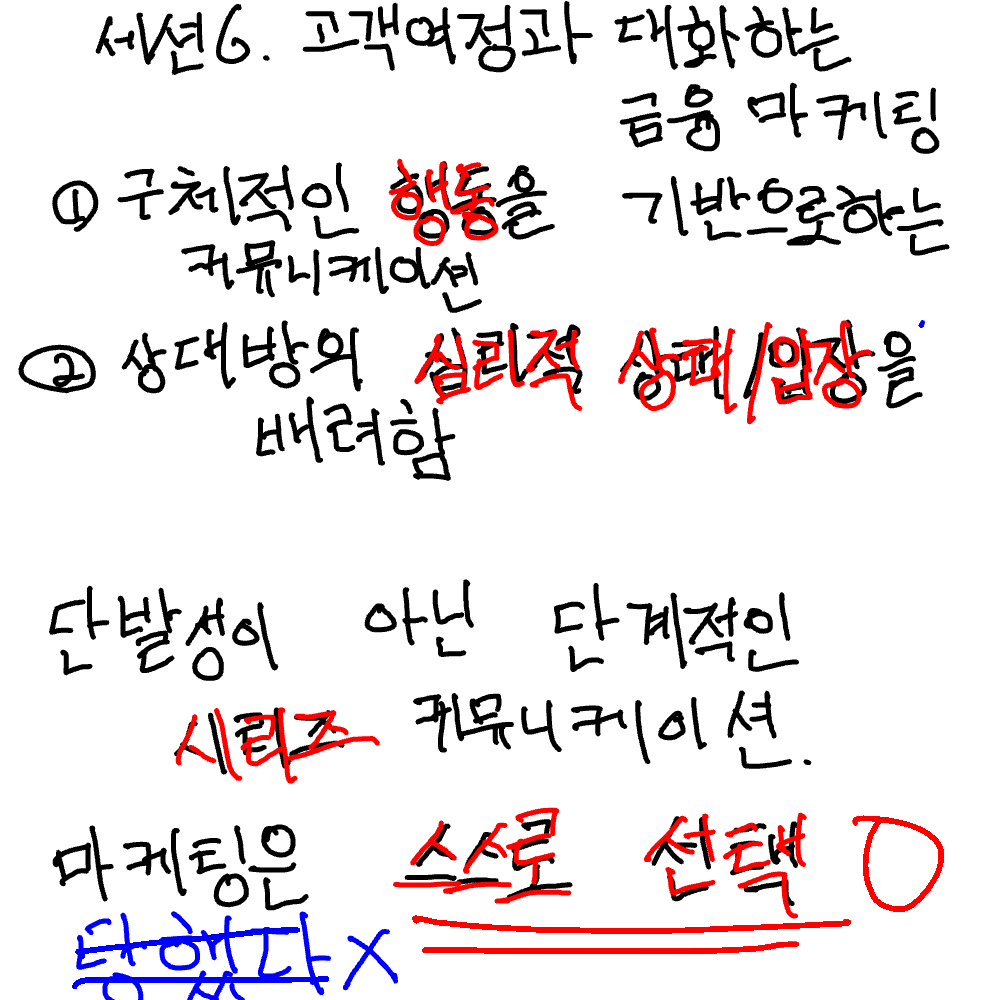 세션6. 고객여정과 대화하는
금융 마케팅
① 구체적인 행동을 기반으로하는
커뮤니케이션
② 상대방의 심리적 상태/입장을
배려함
단발성이 아닌 단계적인
시리즈 커뮤니케이션.
마케팅은 스스로 선택 O
당했다 X